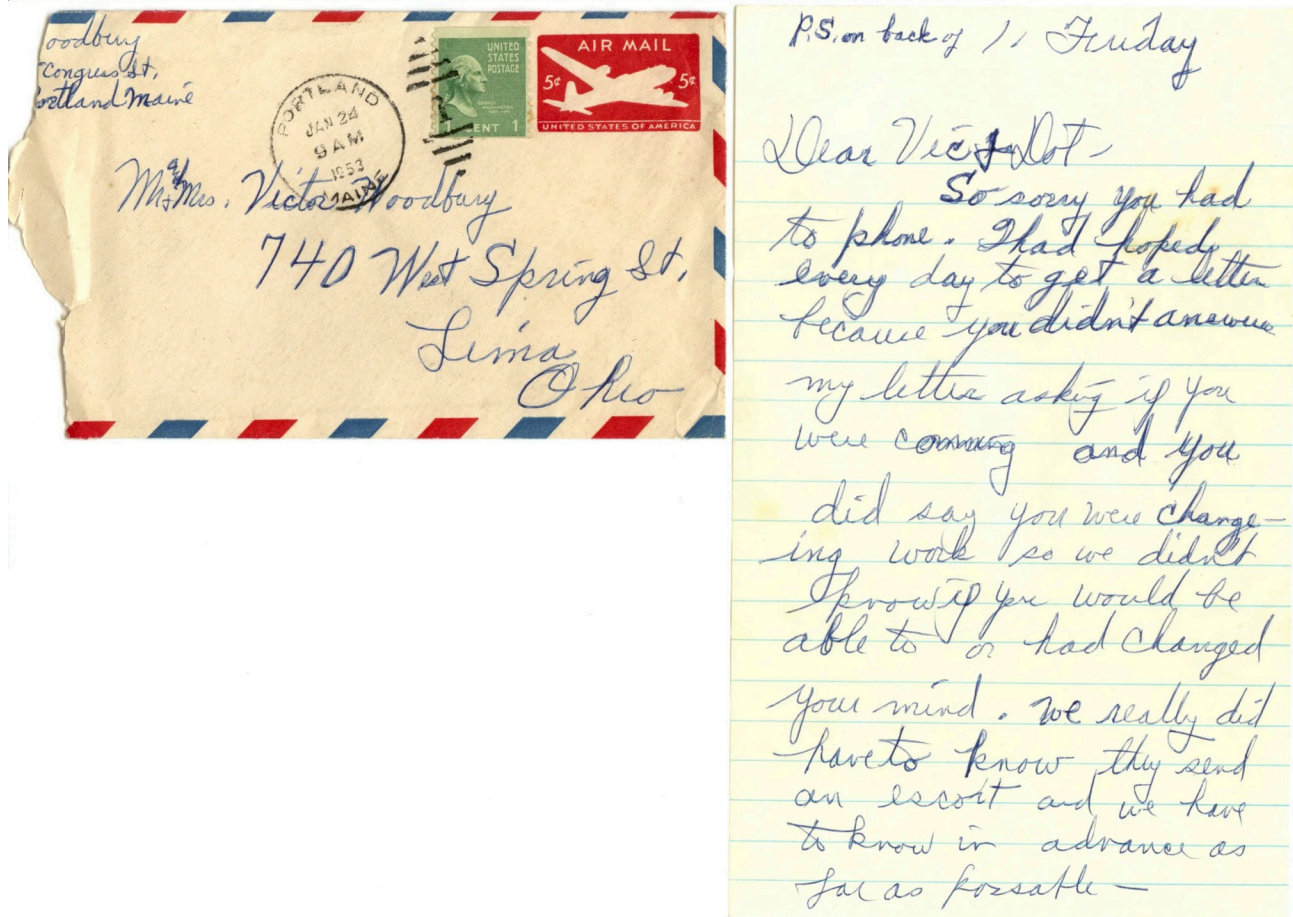 oodbury
Congress St,
ortland Maine
PORTLAND
JAN 24
9 AM
1953
MAINE
UNITED
STATES
POSTAGE
1 CENT 1
AIR MAIL
5¢ 5¢
UNITED STATES OF AMERICA
Mr & Mrs. Victor Woodbury
740 West Spring St,
Lima
Ohio
P.S. on back of 11 Friday
Dear Vic & Dot,
So sorry you had
to phone. I had hoped
every day to get a letter
because you didn't answer
my letter asking if you
were comming and you
did say you were change-
ing work so we didn't
know if you would be
able to or had changed
your mind. we really did
have to know they send
an escort and we have
to know in advance as
far as possable —